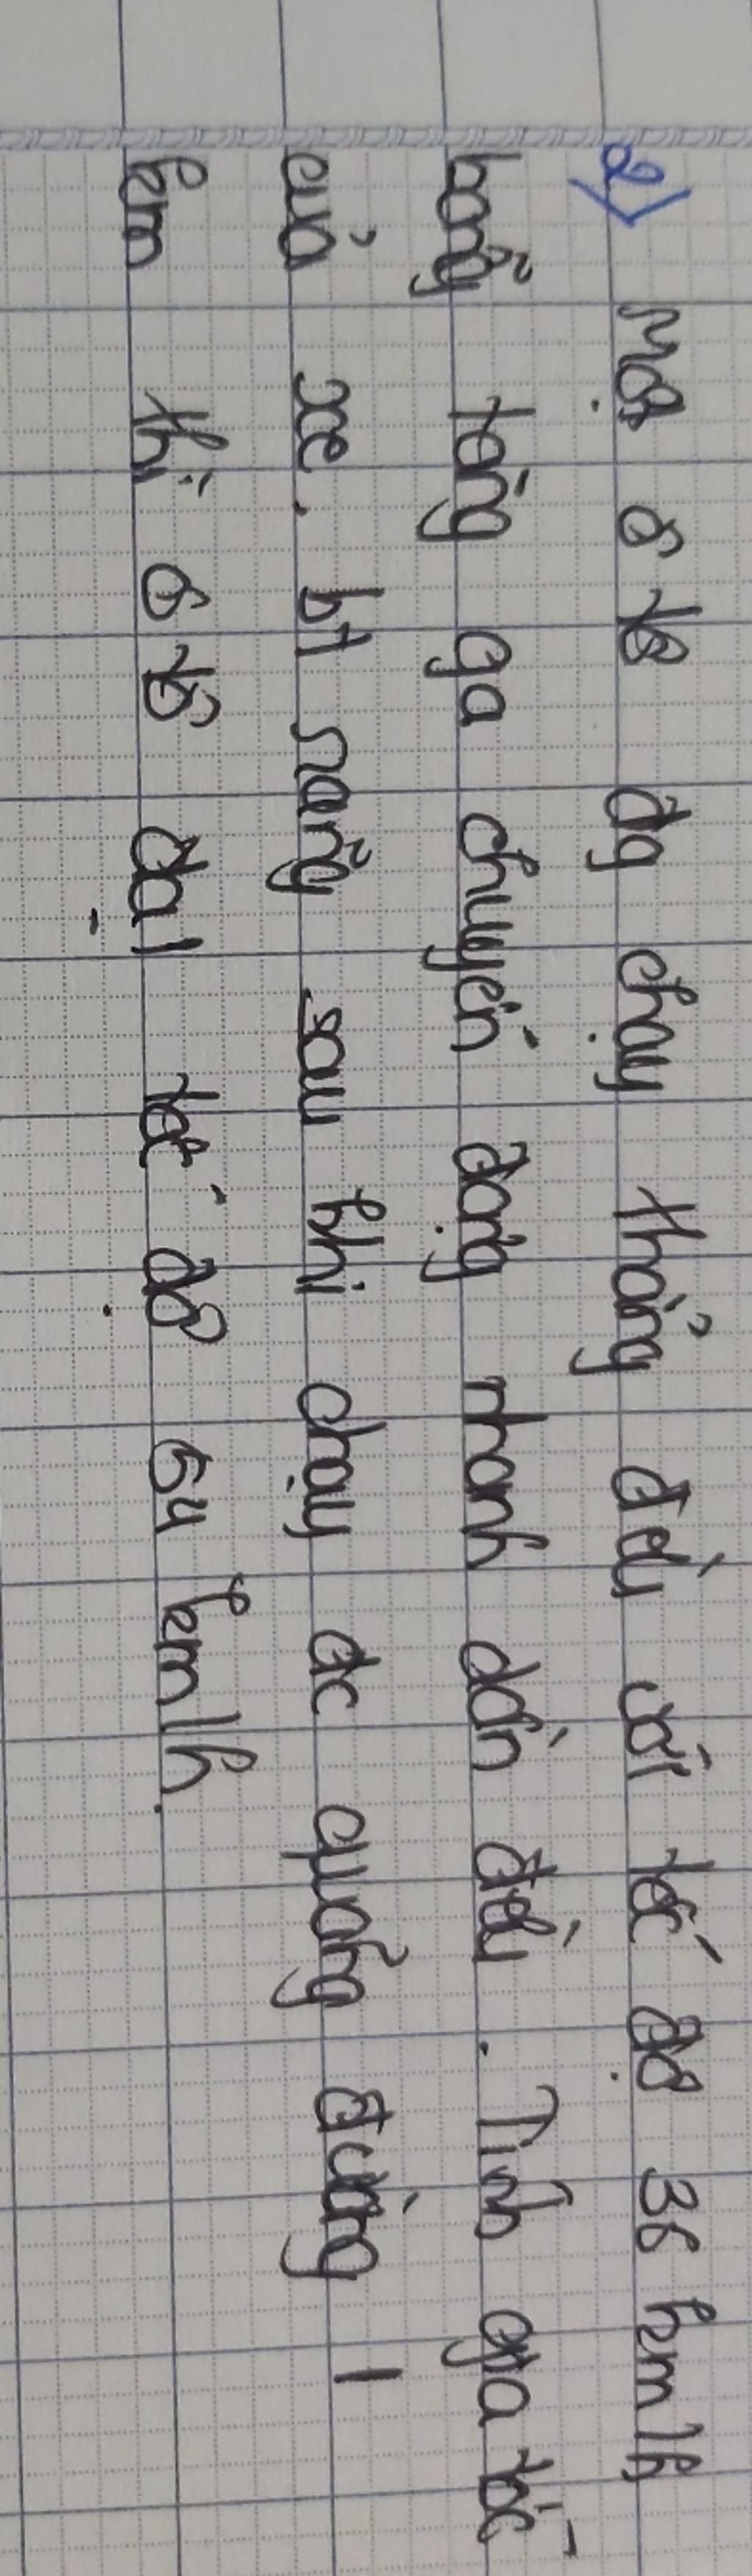 2) Một ô tô đg chạy thẳng đều với tốc độ 36 km/h
bỗng tăng ga chuyển động nhanh dần đều. Tính gia tốc
của xe. bt rằng sau khi chạy đc quãng đường 1
km thì ô tô đạt tốc độ 54 km/h.